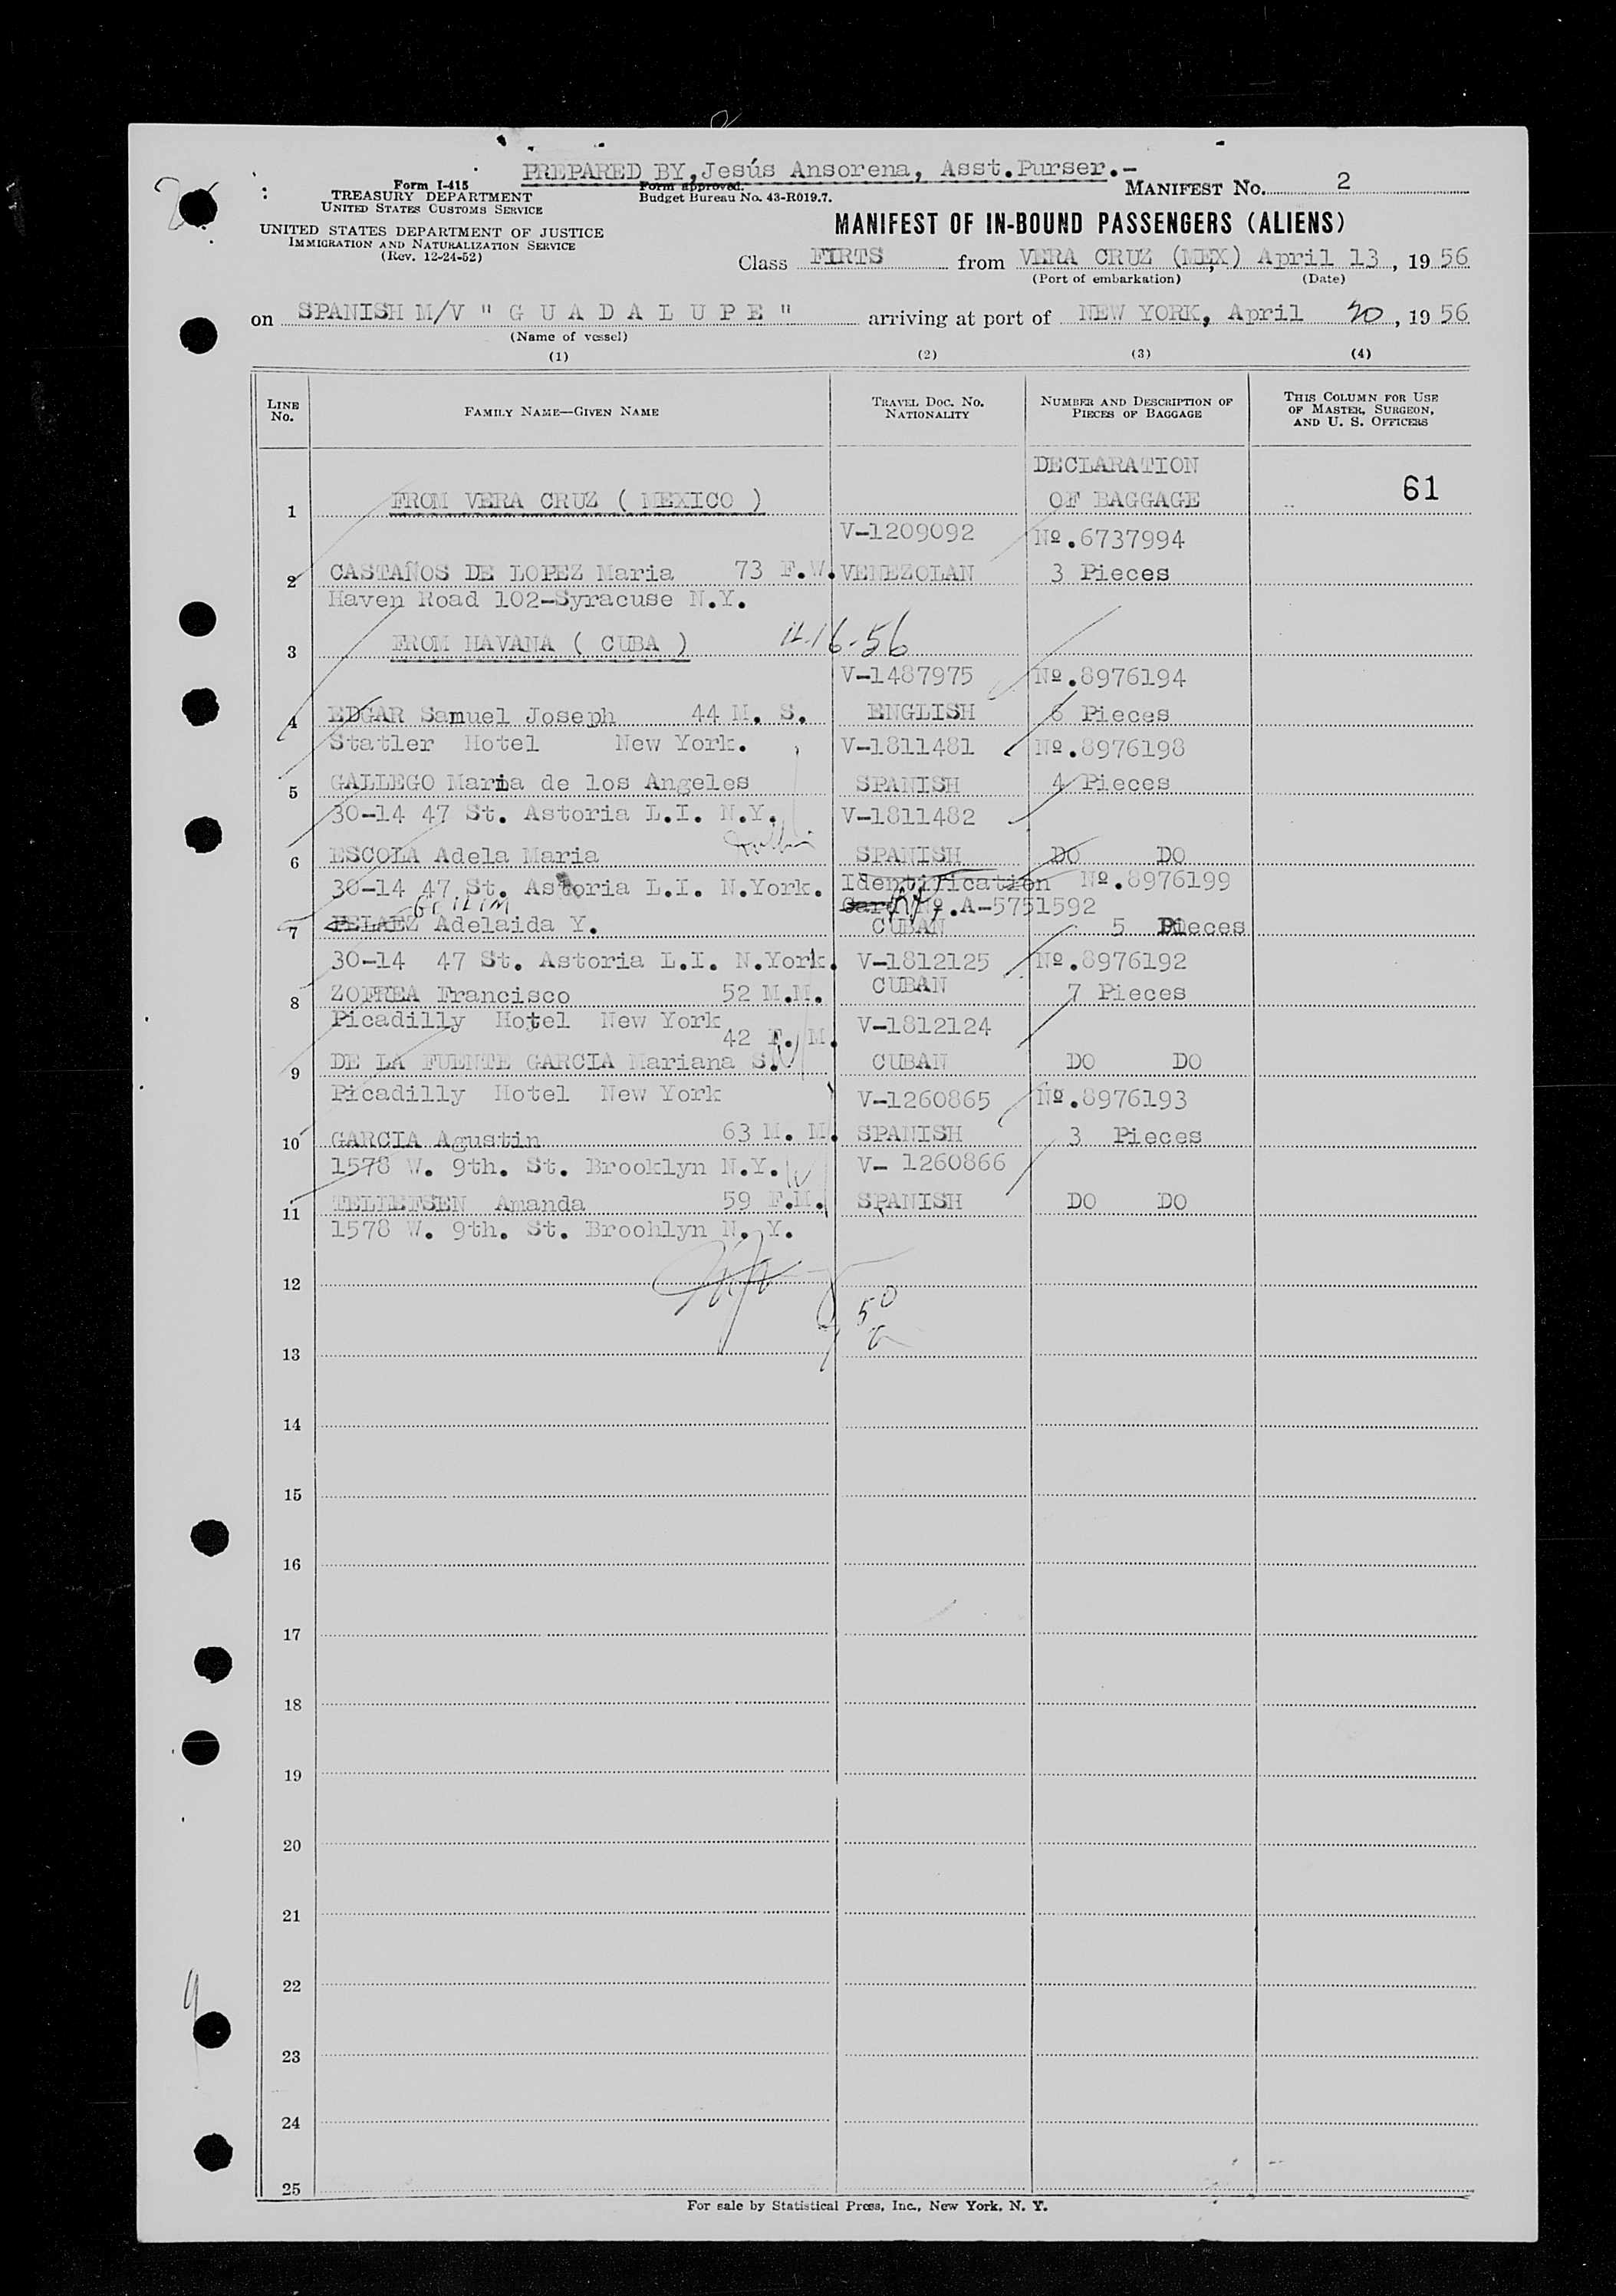 PREPARED BY, Jesús Ansorena, Asst.Purser.-
Form I-415
TREASURY DEPARTMENT
UNITED STATES CUSTOMS SERVICE
Form approved.
Budget Bureau No. 43-R019.7.
MANIFEST No. 2
UNITED STATES DEPARTMENT OF JUSTICE
IMMIGRATION AND NATURALIZATION SERVICE
(Rev. 12-24-52)
MANIFEST OF IN-BOUND PASSENGERS (ALIENS)
Class FIRTS from VERA CRUZ (MEX) April 13, 19 56
(Port of embarkation) (Date)
on SPANISH M/V " G U A D A L U P E " arriving at port of NEW YORK, April 20, 19 56
(Name of vessel)
(1) (2) (3) (4)
LINE No. FAMILY NAME—GIVEN NAME TRAVEL DOC. No. NATIONALITY NUMBER AND DESCRIPTION OF PIECES OF BAGGAGE THIS COLUMN FOR USE OF MASTER, SURGEON, AND U. S. OFFICERS
DECLARATION
1 FROM VERA CRUZ ( MEXICO ) OF BAGGAGE 61
V-1209092 Nº.6737994
2 CASTAÑOS DE LOPEZ Maria 73 F.W. VENEZOLAN 3 Pieces
Haven Road 102-Syracuse N.Y.
3 FROM HAVANA ( CUBA ) 4-16-56
V-1487975 Nº.8976194
4 EDGAR Samuel Joseph 44 M. S. ENGLISH 6 Pieces
Statler Hotel New York. V-1811481 Nº.8976198
5 GALLEGO Maria de los Angeles SPANISH 4 Pieces
30-14 47 St. Astoria L.I. N.Y. V-1811482
6 ESCOLA Adela Maria SPANISH DO DO
30-14 47 St. Astoria L.I. N.York. Identification Nº.8976199
Card Nº.A-5751592
7 PELAEZ Adelaida Y. CUBAN 5 Pieces
30-14 47 St. Astoria L.I. N.York. V-1812125 Nº.8976192
8 ZORREA Francisco 52 M.M. CUBAN 7 Pieces
Picadilly Hotel New York V-1812124
42 F. M.
9 DE LA FUENTE GARCIA Mariana S. CUBAN DO DO
Picadilly Hotel New York V-1260865 Nº.8976193
10 GARCIA Agustin 63 M. M. SPANISH 3 Pieces
1578 W. 9th. St. Brooklyn N.Y. V- 1260866
11 TELLEFSEN Amanda 59 F.M. SPANISH DO DO
1578 W. 9th. St. Broohlyn N. Y.
12
50
13
14
15
16
17
18
19
20
21
22
23
24
25
For sale by Statistical Press, Inc., New York, N. Y.